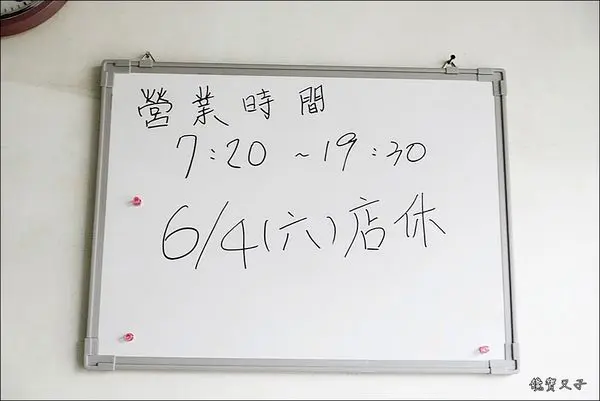 營業時間
7:20 ~19:30
6/4(六)店休